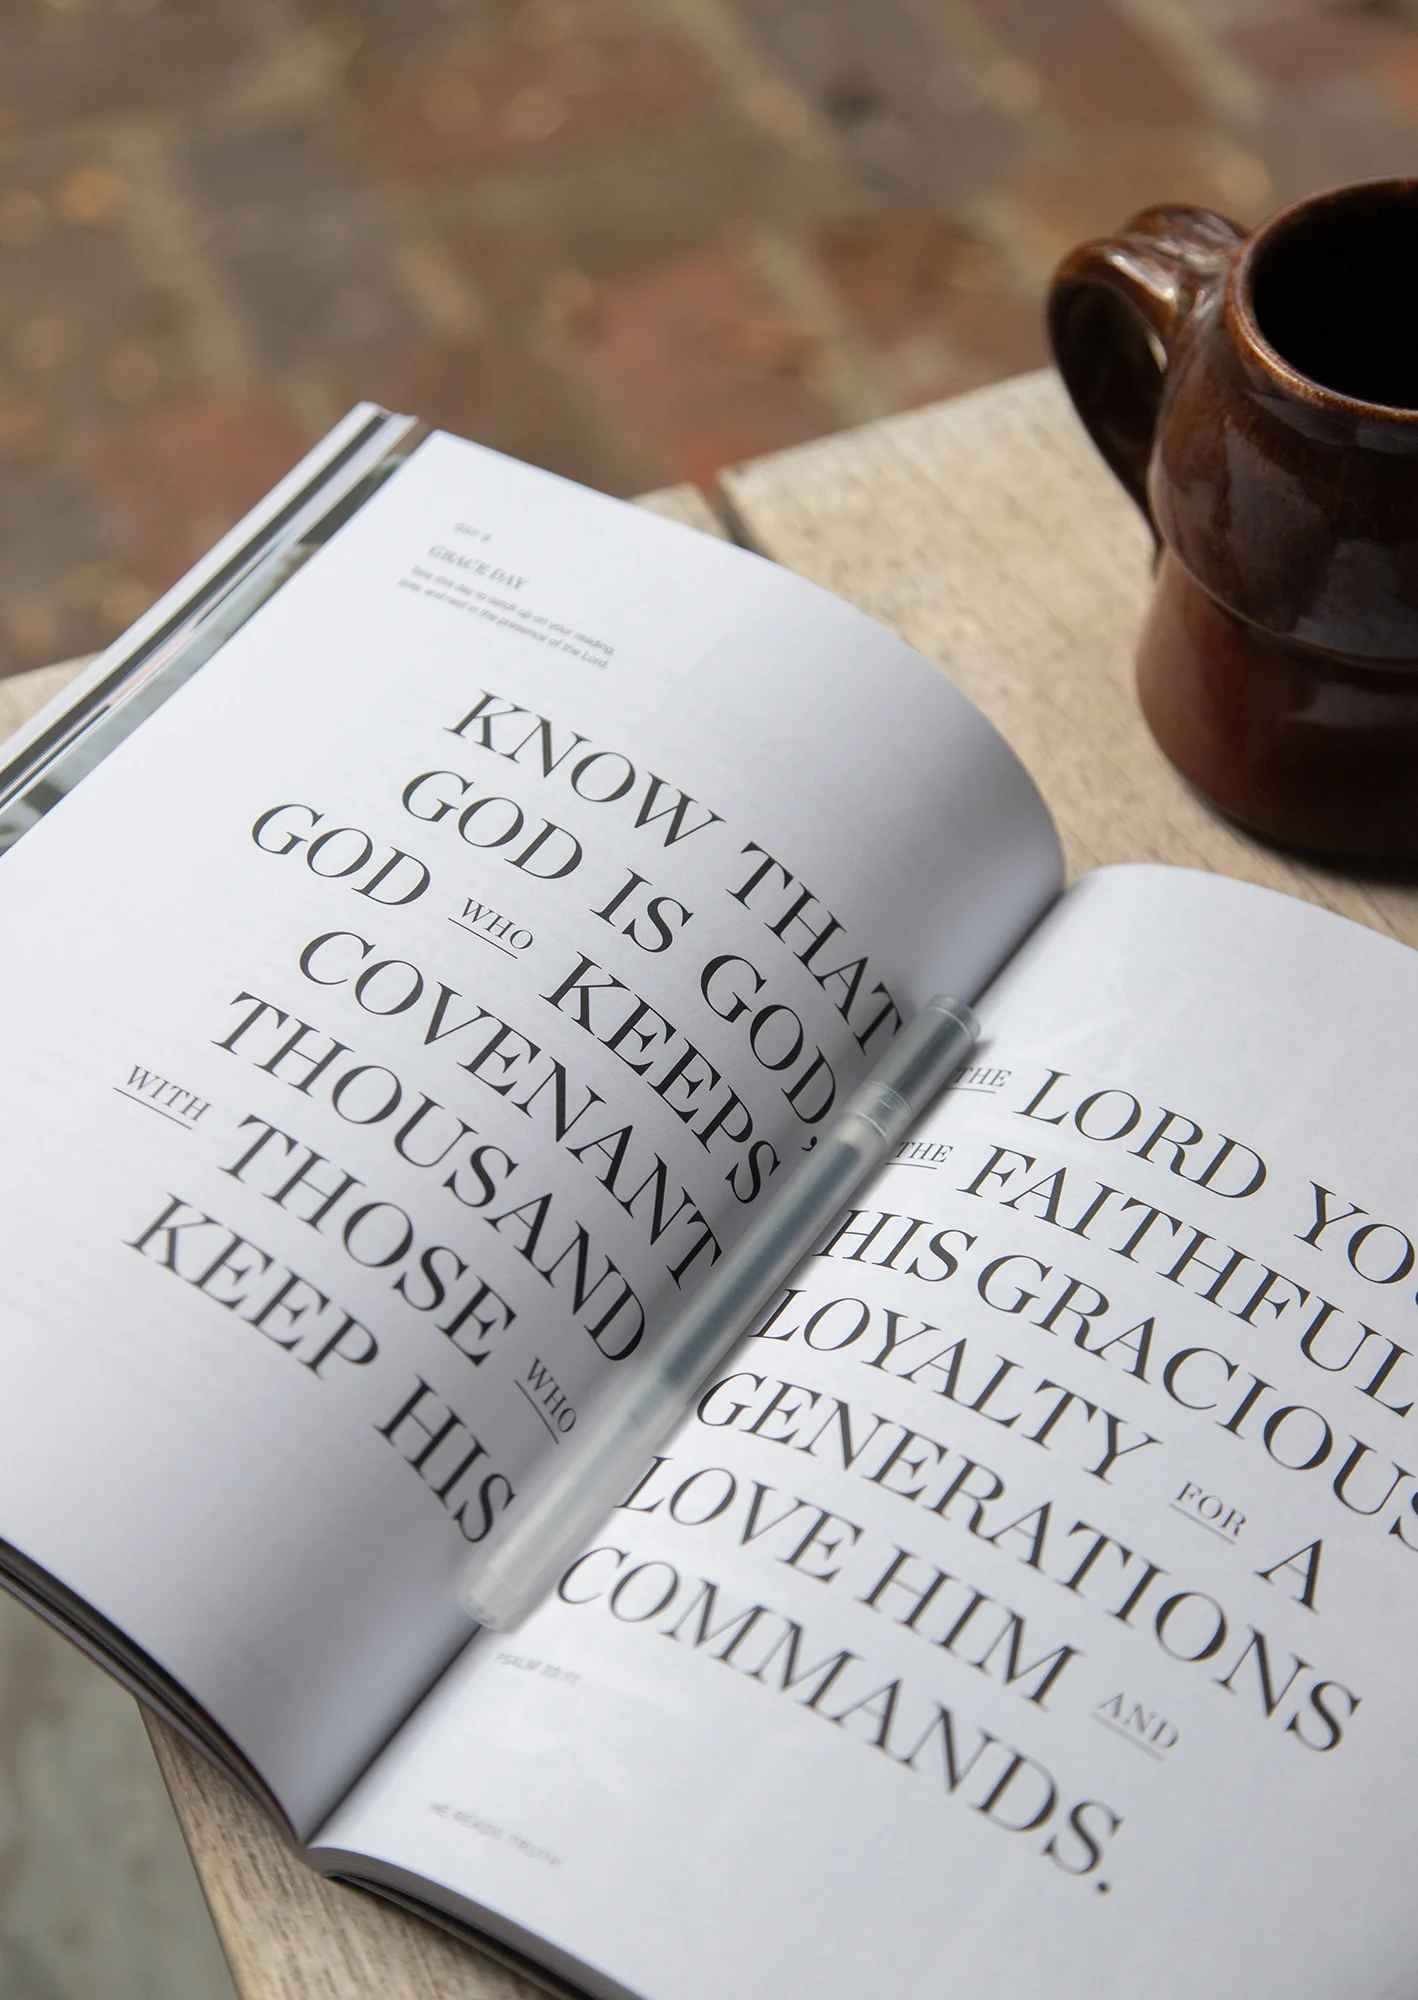 GRACE DAY
Take this day to catch up on your reading,
pray, and rest in the presence of the Lord.
KNOW THAT
GOD IS GOD,
GOD WHO KEEPS
COVENANT
THOUSAND
WITH THOSE WHO
KEEP HIS
THE LORD YO
THE FAITHFUL
HIS GRACIOUS
LOYALTY FOR A
GENERATIONS
LOVE HIM AND
COMMANDS.
PSALM
HE READS TRUTH